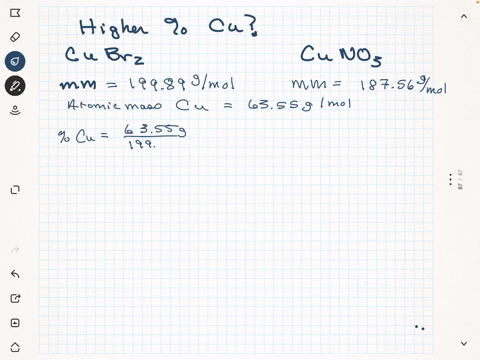 Higher % Cu?
CuBr2 CuNO3
mm = 199.89 g/mol mm = 187.56 g/mol
Atomic mass Cu = 63.55 g/mol
% Cu = 63.55g
199.